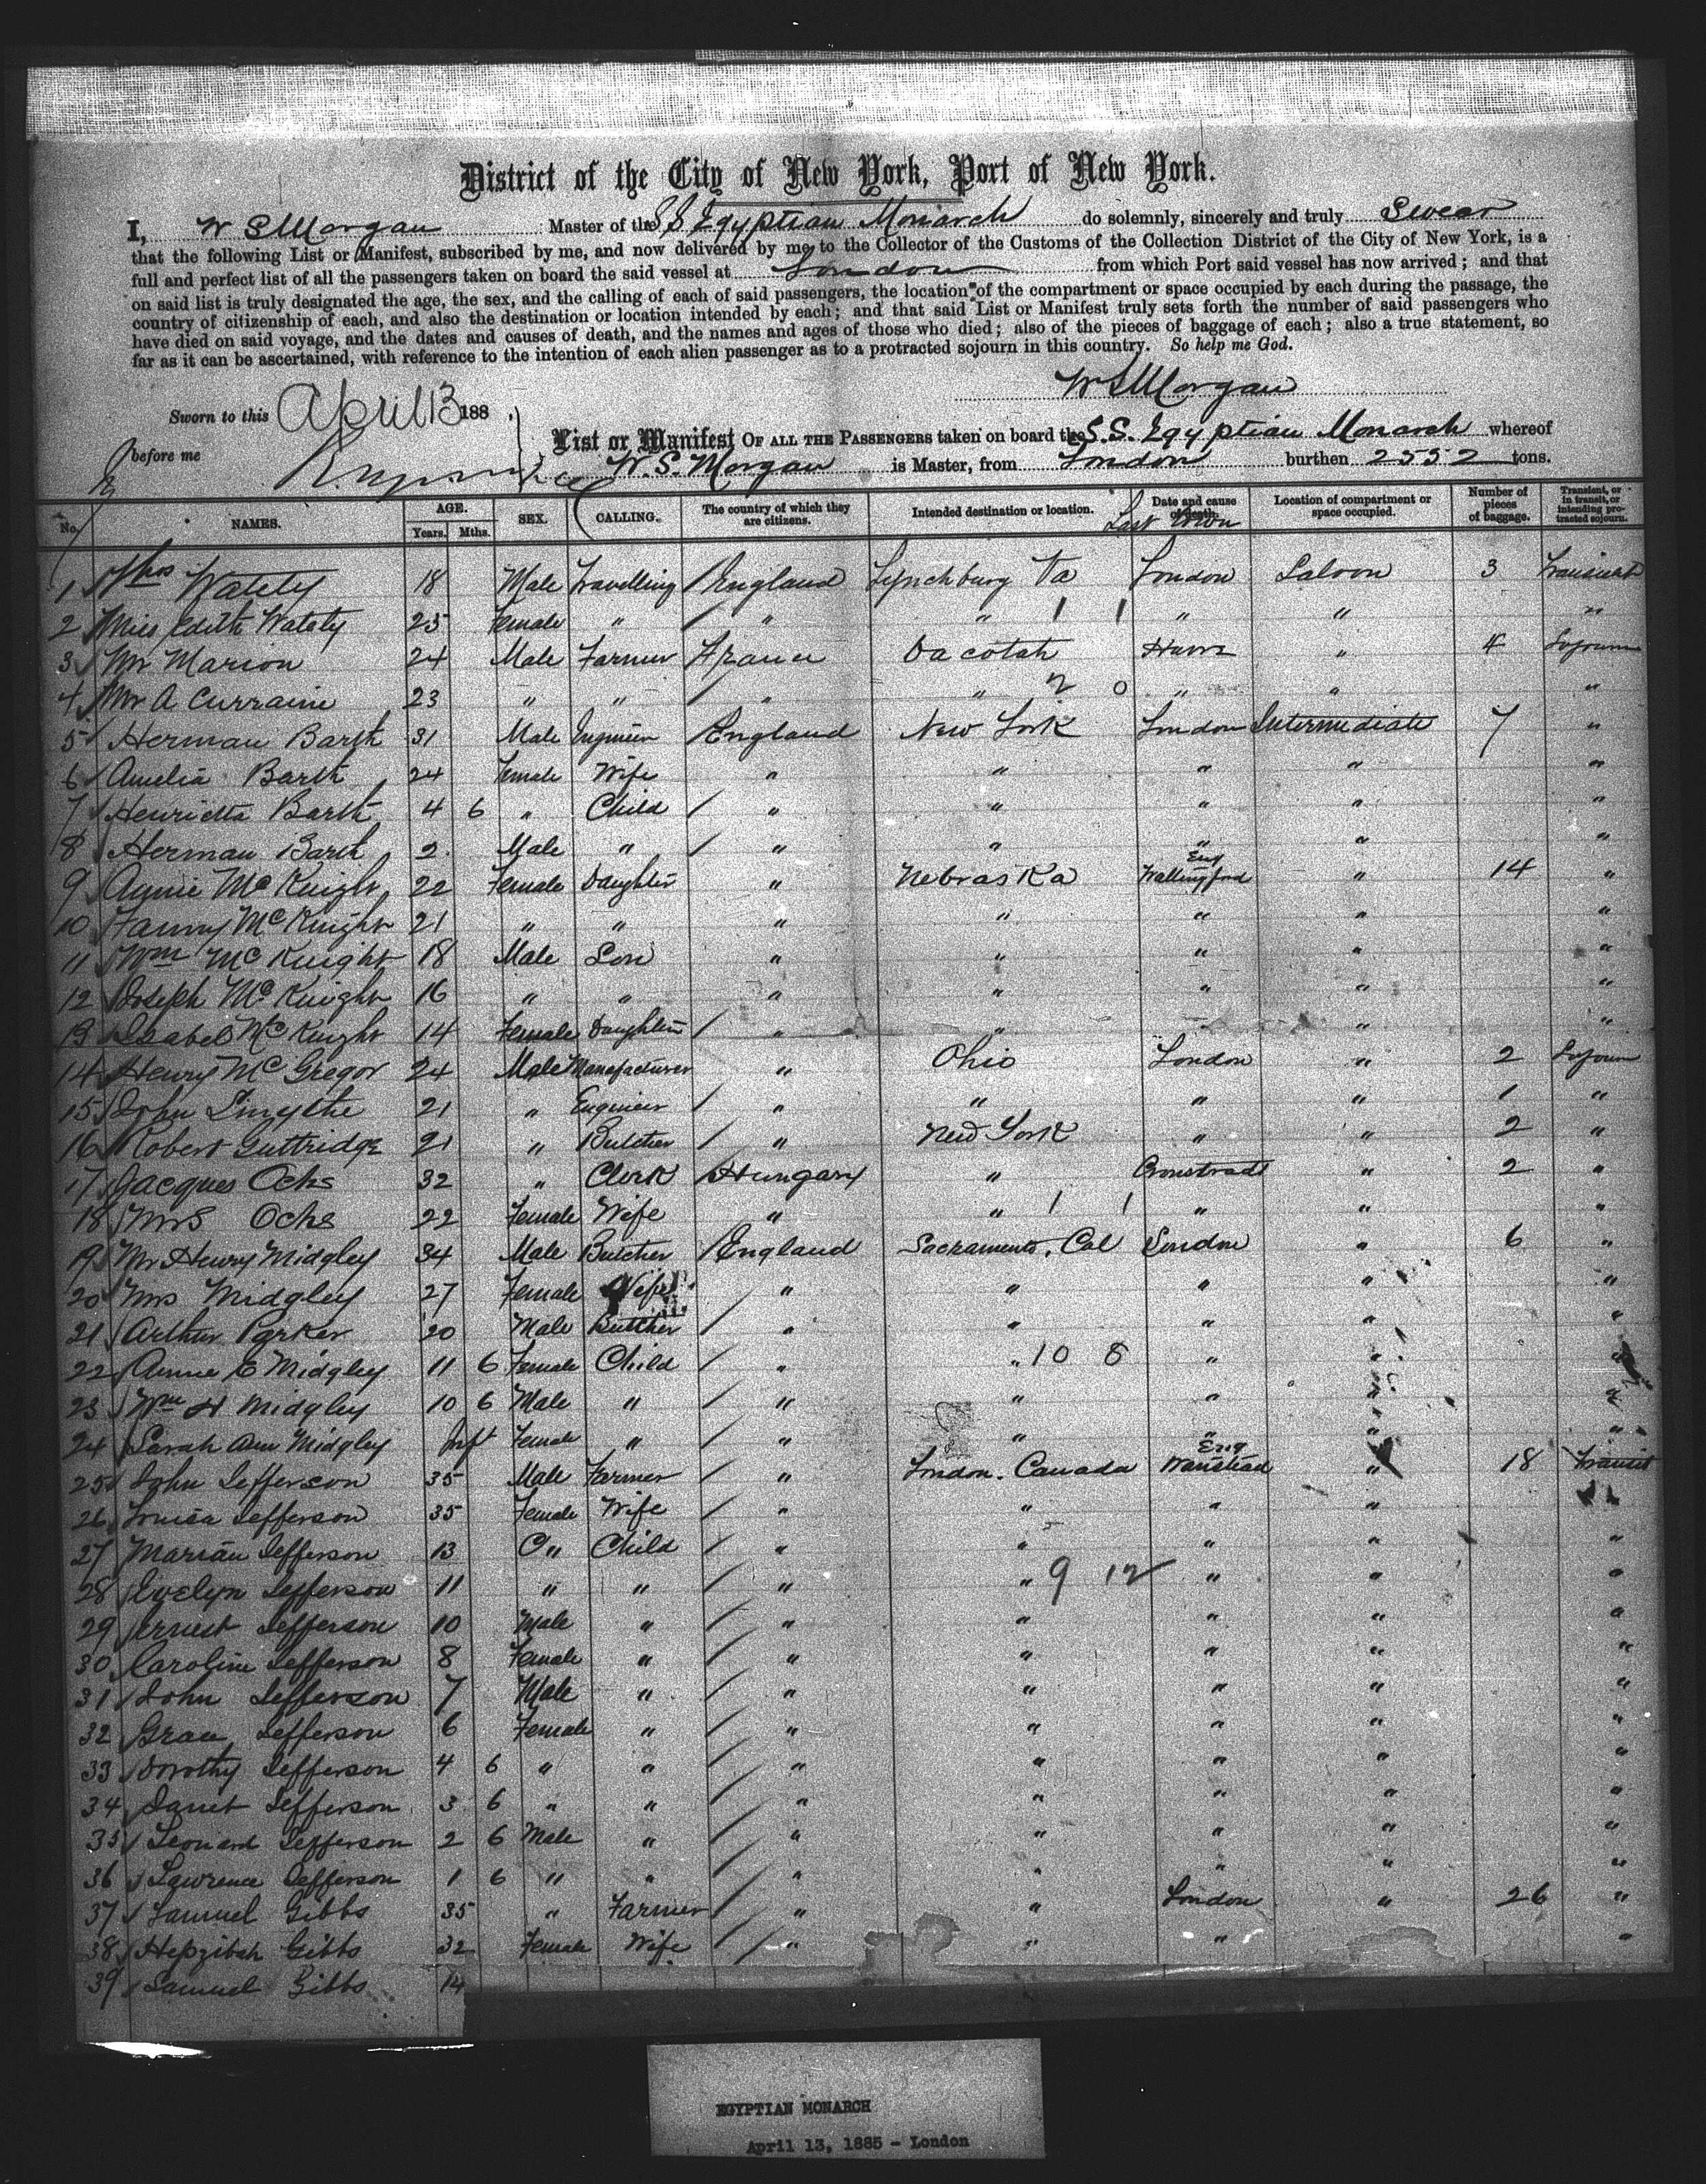 District of the City of New York, Port of New York.
I, W S Morgan Master of the S.S. Egyptian Monarch do solemnly, sincerely and truly Swear
that the following List or Manifest, subscribed by me, and now delivered by me to the Collector of the Customs of the Collection District of the City of New York, is a
full and perfect list of all the passengers taken on board the said vessel at London from which Port said vessel has now arrived; and that
on said list is truly designated the age, the sex, and the calling of each of said passengers, the location of the compartment or space occupied by each during the passage, the
country of citizenship of each, and also the destination or location intended by each; and that said List or Manifest truly sets forth the number of said passengers who
have died on said voyage, and the dates and causes of death, and the names and ages of those who died; also of the pieces of baggage of each; also a true statement, so
far as it can be ascertained, with reference to the intention of each alien passenger as to a protracted sojourn in this country. So help me God.
W S Morgan
Sworn to this April 13 188 .
before me
List or Manifest OF ALL THE PASSENGERS taken on board the S.S. Egyptian Monarch whereof
W. S. Morgan is Master, from London burthen 2552 tons.
No. NAMES. AGE. Years. Mths. SEX. CALLING. The country of which they are citizens. Intended destination or location. Date and cause of death. Last Town Location of compartment or space occupied. Number of pieces of baggage. Transient, or in transit, or intending protracted sojourn.
1 Thos 18 Male Travelling England Lynchburg Va London Saloon 3 Transient
2 Miss Edith 25 Female " " " 1 1 " " "
3 Mr Marion 24 Male Farmer France Dacotah Havre " 4 Sojourn
4 Mr A Curraine 23 " " " " 2 0 " " "
5 Herman Barth 31 Male Engineer England New York London Intermediate 7 "
6 Amelia Barth 24 Female Wife " " " " "
7 Henrietta Barth 4 6 " Child " " " " "
8 Herman Barth 2 Male " " " " " "
9 Annie McKnight 22 Female Daughter " Nebraska Eng Wallingford " 14 "
10 Fanny McKnight 21 " " " " " " "
11 Wm McKnight 18 Male Son " " " " "
12 Joseph McKnight 16 " " " " " " "
13 Isabel McKnight 14 Female Daughter " " " " "
14 Henry McGregor 24 Male Manufacturer " Ohio London " 2 Sojourn
15 John Smythe 21 " Engineer " " " " 1 "
16 Robert Guttridge 21 " Butcher " New York " " 2 "
17 Jacques Ochs 32 " Clerk Hungary " Cronstradt " 2 "
18 Mrs Ochs 22 Female Wife " " 1 1 " " "
19 Mr Henry Midgley 34 Male Butcher England Sacramento, Cal London " 6 "
20 Mrs Midgley 27 Female Wife " " " " "
21 Arthur Parker 20 Male Butcher " " " " "
22 Annie E Midgley 11 6 Female Child " " 10 8 " " "
23 Wm H Midgley 10 6 Male " " " " " "
24 Sarah Ann Midgley Inft Female " " " " " "
25 John Jefferson 35 Male Farmer " London. Canada Eng Wanstead " 18 Transit
26 Louisa Jefferson 35 Female Wife " " " " "
27 Marian Jefferson 13 " Child " " " " "
28 Evelyn Jefferson 11 " " " " 9 12 " " "
29 Ernest Jefferson 10 Male " " " " " "
30 Caroline Jefferson 8 Female " " " " " "
31 John Jefferson 7 Male " " " " " "
32 Grace Jefferson 6 Female " " " " " "
33 Dorothy Jefferson 4 6 " " " " " " "
34 Janet Jefferson 3 6 " " " " " " "
35 Leonard Jefferson 2 6 Male " " " " " "
36 Lawrence Jefferson 1 6 " " " " " " "
37 Samuel Gibbs 35 " Farmer " " London " 26 "
38 Hepzibah Gibbs 32 Female Wife " " " "
39 Samuel Gibbs 14
EGYPTIAN MONARCH
April 13, 1885 - London